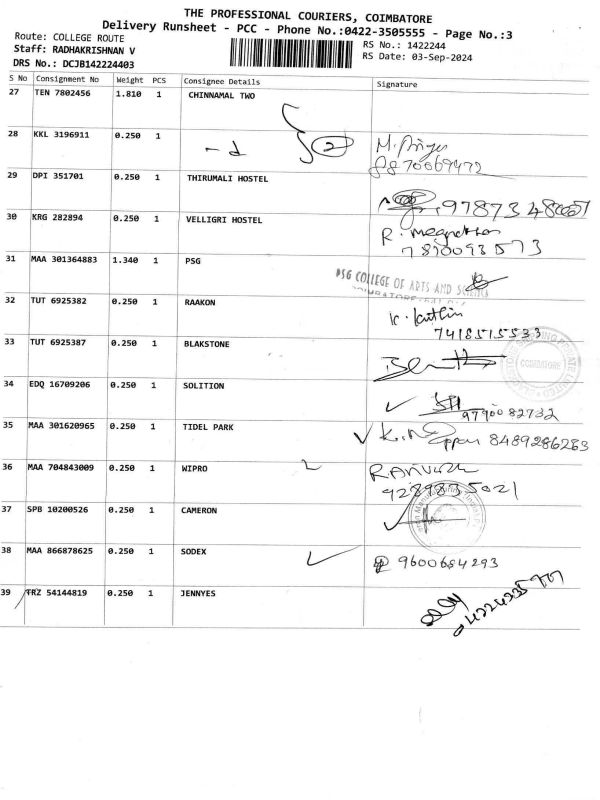 THE PROFESSIONAL COURIERS, COIMBATORE
Delivery Runsheet - PCC - Phone No.:0422-3505555 - Page No.:3
Route: COLLEGE ROUTE
RS No.: 1422244
Staff: RADHAKRISHNAN V
RS Date: 03-Sep-2024
DRS No.: DCJB142224403
S No Consignment No Weight PCS Consignee Details Signature
27 TEN 7802456 1.810 1 CHINNAMAL TWO
28 KKL 3196911 0.250 1 - d 2 M.
8870069472
29 DPI 351701 0.250 1 THIRUMALI HOSTEL
30 KRG 282894 0.250 1 VELLIGRI HOSTEL R.
7810093573
31 MAA 301364883 1.340 1 PSG
PSG COLLEGE OF ARTS AND SCIENCE
32 TUT 6925382 0.250 1 RAAKON K.
7418515533
33 TUT 6925387 0.250 1 BLAKSTONE
COIMBATORE
34 EDQ 16709206 0.250 1 SOLITION
9790082732
35 MAA 301620965 0.250 1 TIDEL PARK 8489286263
36 MAA 704843009 0.250 1 WIPRO
9289835021
37 SPB 10200526 0.250 1 CAMERON
38 MAA 866878625 0.250 1 SODEX 9600684293
39 TRZ 54144819 0.250 1 JENNYES